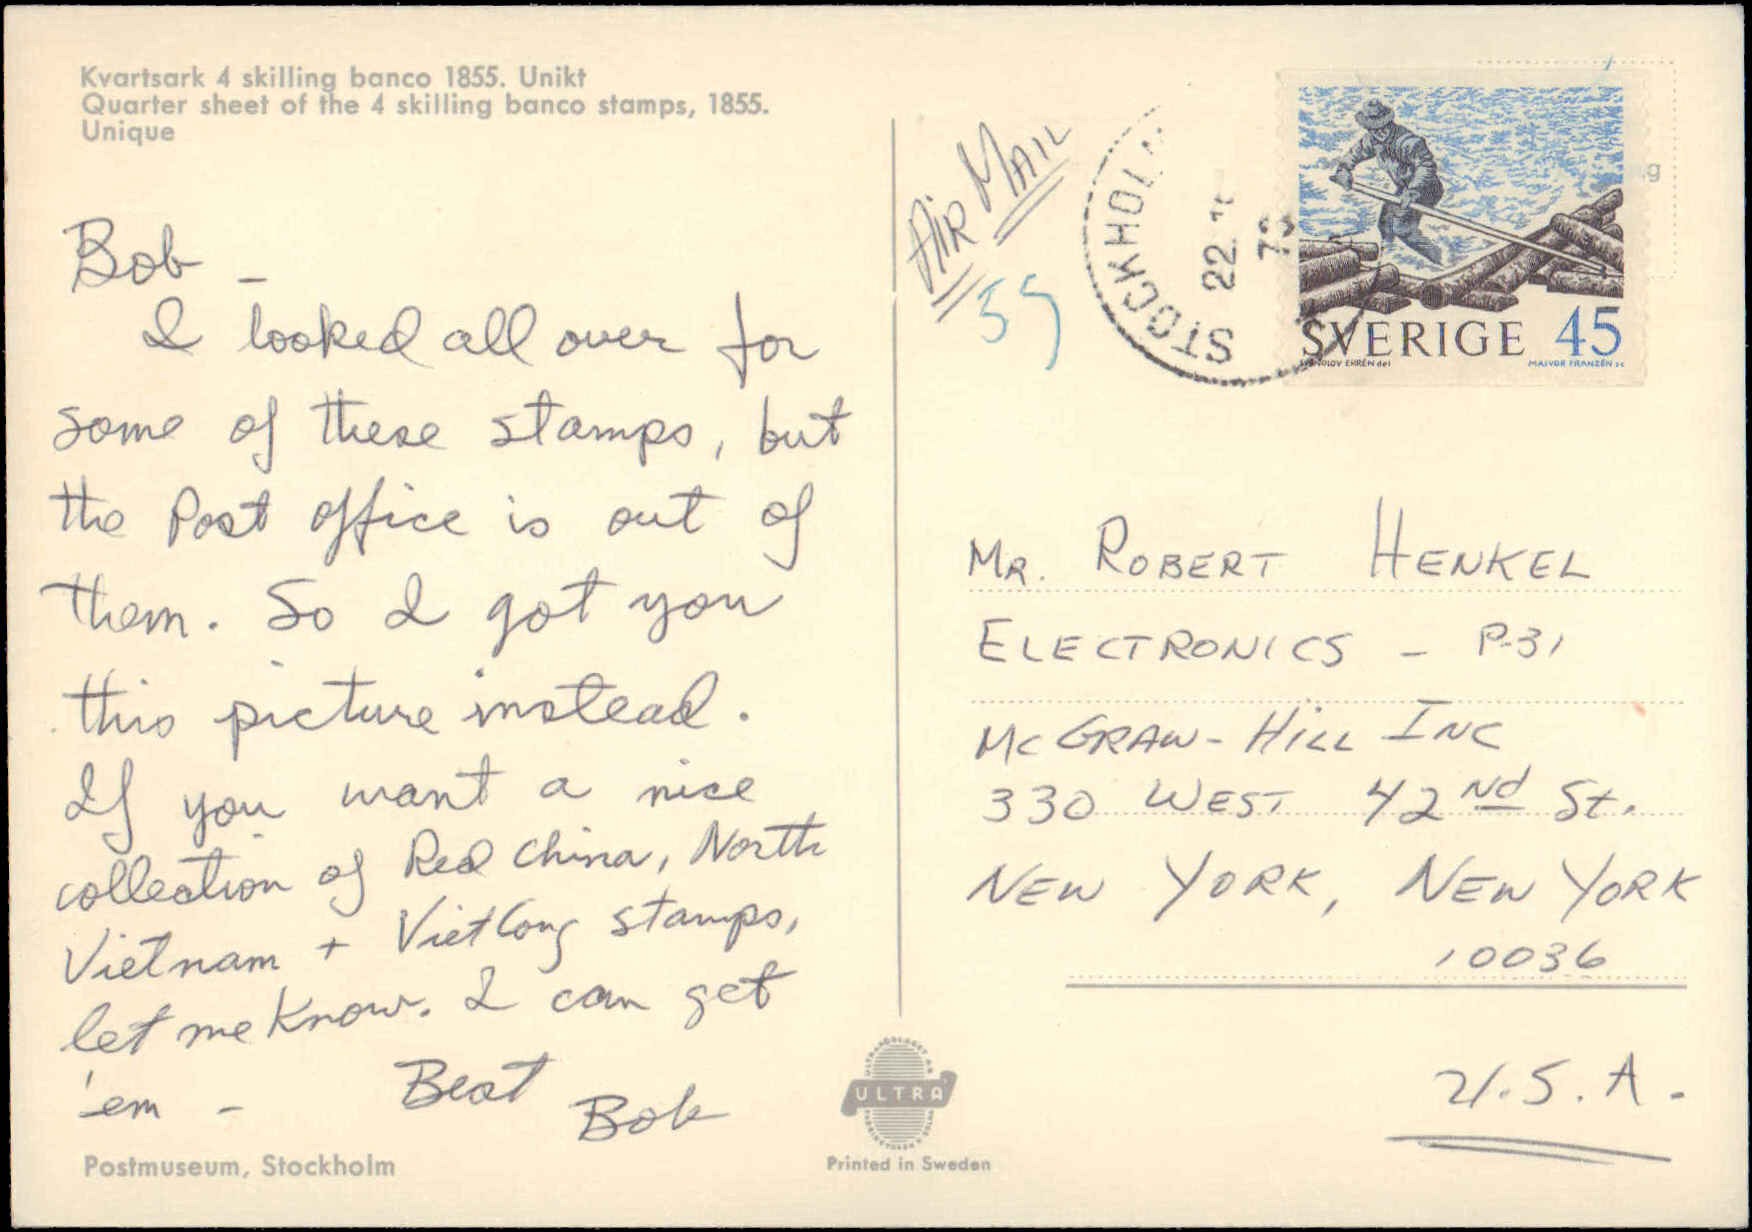 Kvartsark 4 skilling banco 1855. Unikt
Quarter sheet of the 4 skilling banco stamps, 1855.
Unique
Bob –
I looked all over for
some of these stamps, but
the Post office is out of
them. So I got you
this picture instead.
If you want a nice
collection of Red China, North
Vietnam + VietCong stamps,
let me know. I can get
'em –
Best
Bob
Postmuseum, Stockholm
AIR MAIL
59
STOCKHOLM
22
SVERIGE 45
EHRÉN del
MAJVOR FRANZÉN sc
MR. ROBERT HENKEL
ELECTRONICS – P-31
McGRAW-HILL INC
330 WEST 42ND St.
NEW YORK, NEW YORK
10036
U.S.A.
ULTRA
Printed in Sweden